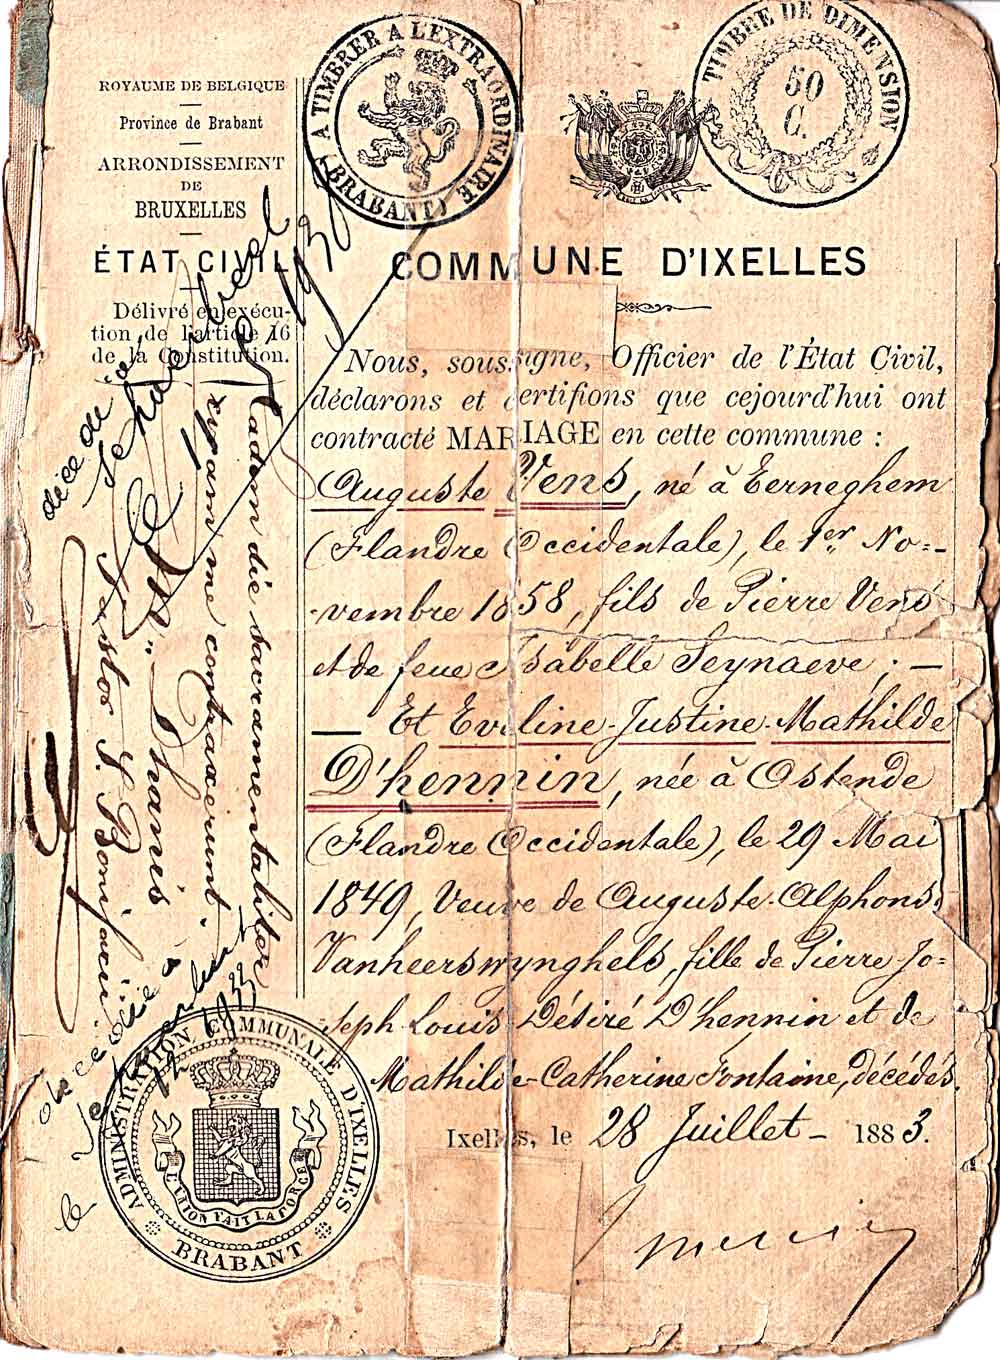 ROYAUME DE BELGIQUE
Province de Brabant
ARRONDISSEMENT
DE
BRUXELLES
ÉTAT CIVIL
Délivré en exécu-
tion de l'article 16
de la Constitution.
A TIMBRER A L'EXTRAORDINAIRE
(BRABANT)
TIMBRE DE DIMENSION
50
C.
COMMUNE D'IXELLES
Nous, soussigné, Officier de l'État Civil,
déclarons et certifions que cejourd'hui ont
contracté MARIAGE en cette commune :
Auguste Vens, né à Eerneghem
(Flandre Occidentale), le 1er No=
vembre 1858, fils de Pierre Vens
et de feue Isabelle Seynaeve ; —
— Et Eveline-Justine-Mathilde
D'hennin, née à Ostende
(Flandre Occidentale), le 29 Mai
1849, Veuve de Auguste-Alphons
Vanheerswynghels, fille de Pierre-Jo=
seph-Louis-Désiré D'hennin et de
Mathilde-Catherine Fontaine, décédés.
Ixelles, le 28 Juillet - 1883.
Eadem die sacramentaliter
contraxerunt
Dhanis
décédé à
le
1930
décédée à
le
12
1933
ADMINISTRATION COMMUNALE D'IXELLES
BRABANT
L'UNION FAIT LA FORCE